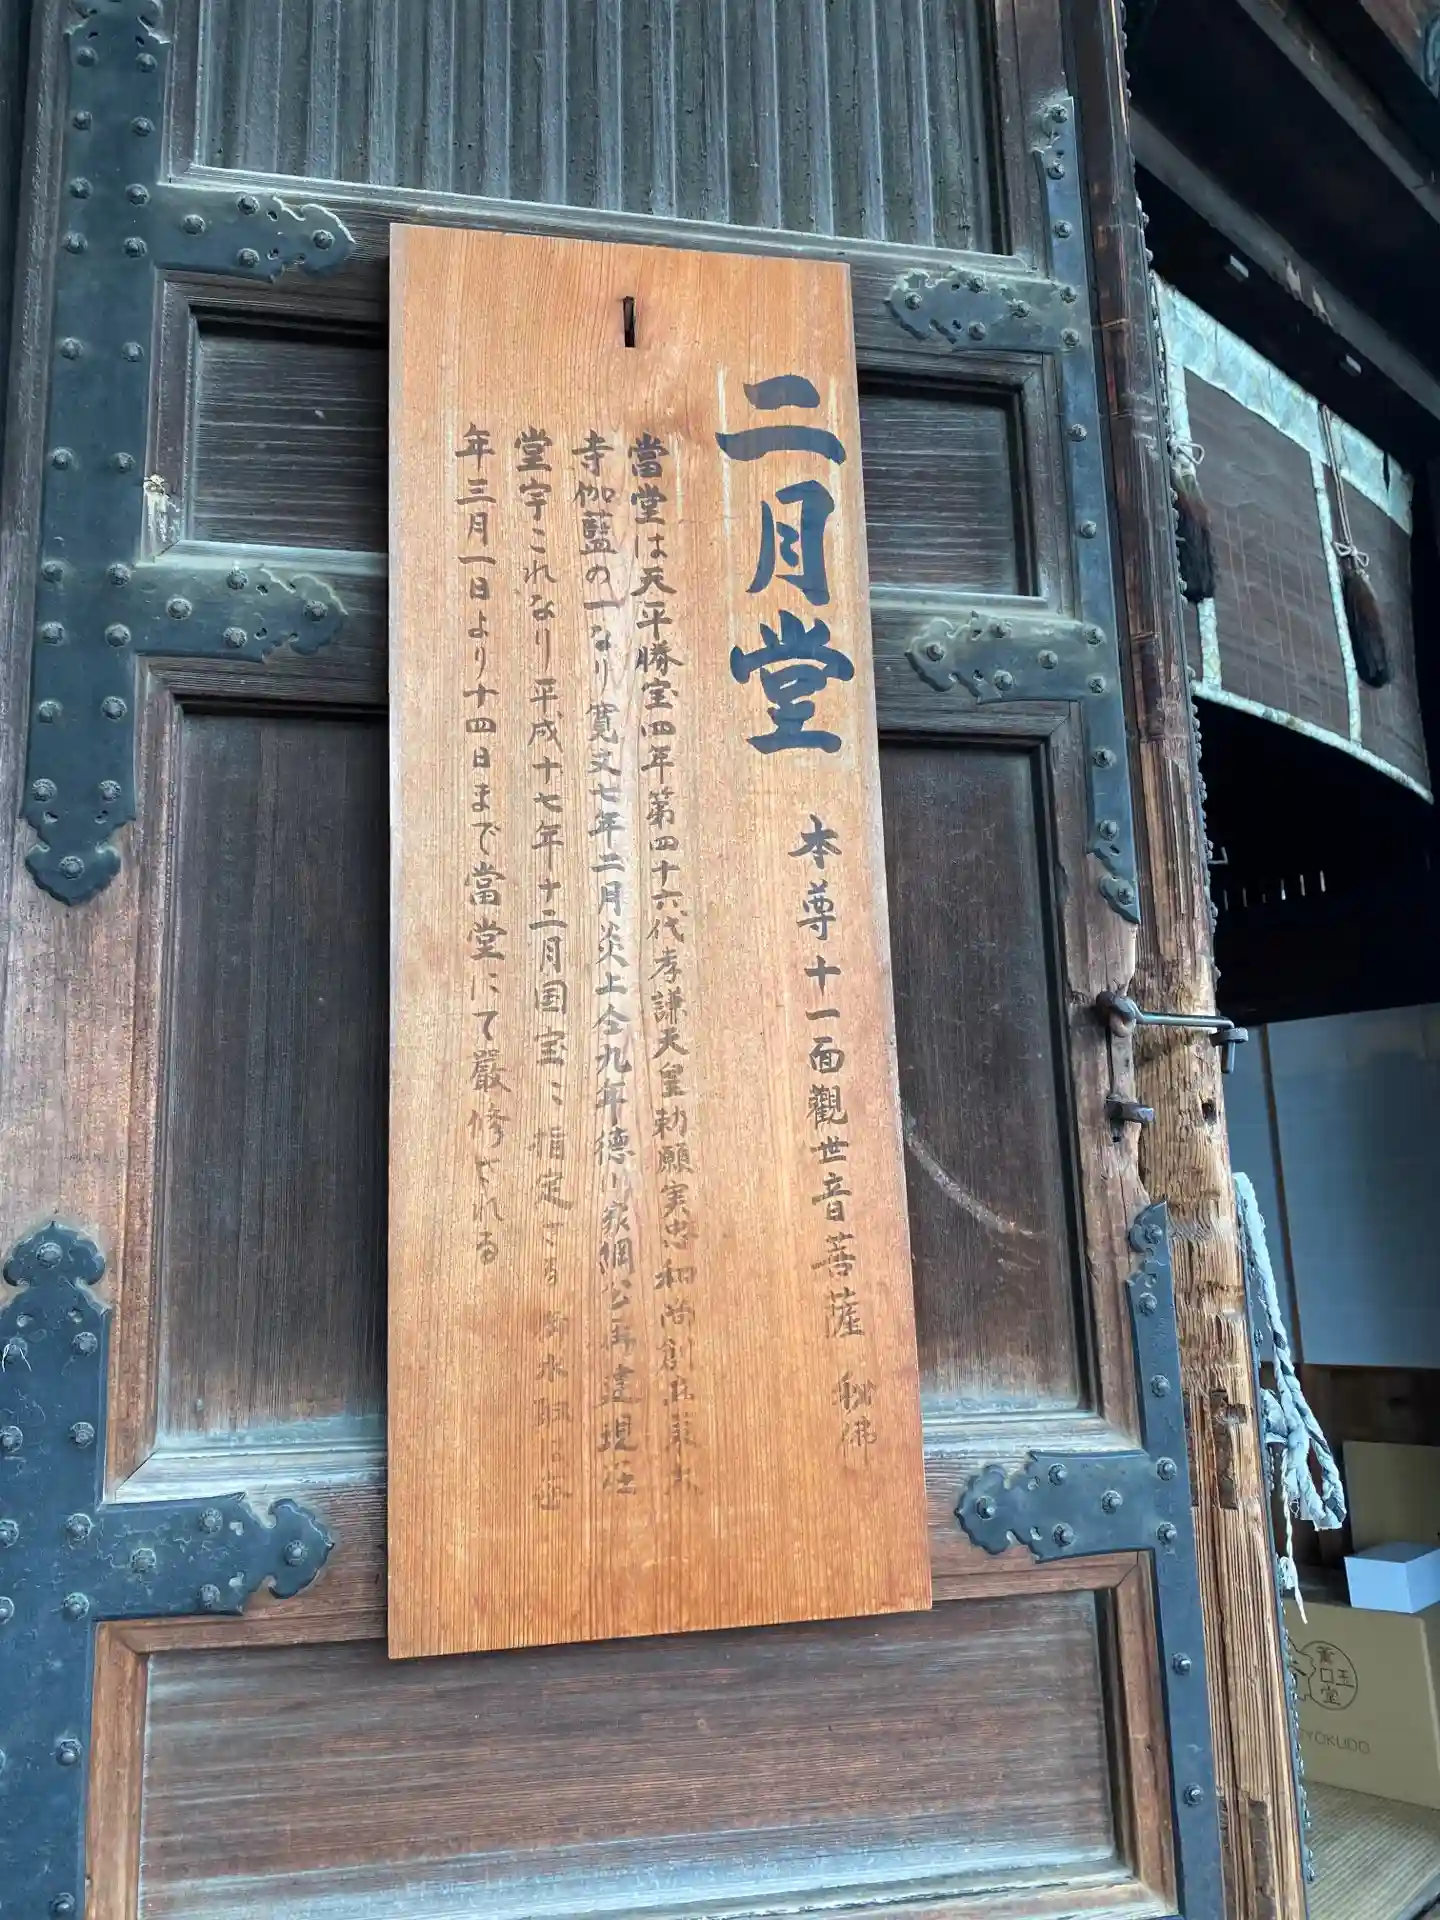 二月堂 本尊十一面觀世音菩薩 秘佛
當堂は天平勝宝四年第四十六代孝謙天皇勅願実忠和尚創
寺伽藍の一なり寛文七年二月炎上仝九年徳川家綱公再建現在
堂宇これなり平成十七年十二月国宝に指定さる御水取は
年三月一日より十四日まで當堂にて嚴修される
玉堂